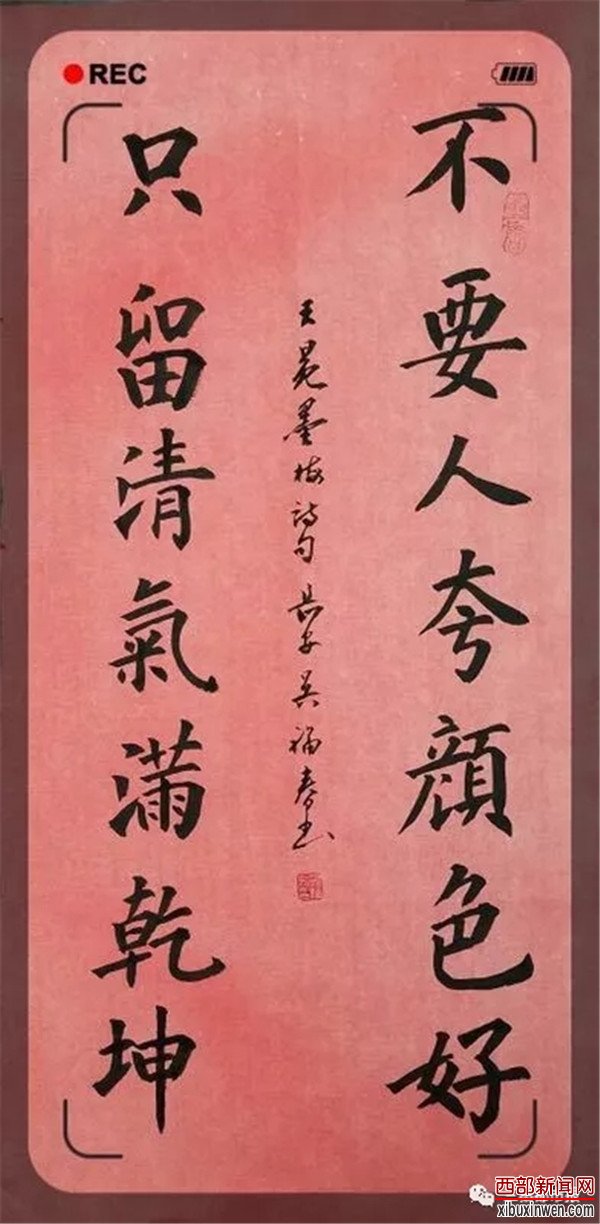 REC
不要人夸顏色好
只留清氣滿乾坤
王冕墨梅詩句 長安吳福春书
西部新闻网
xibuxinwen.com